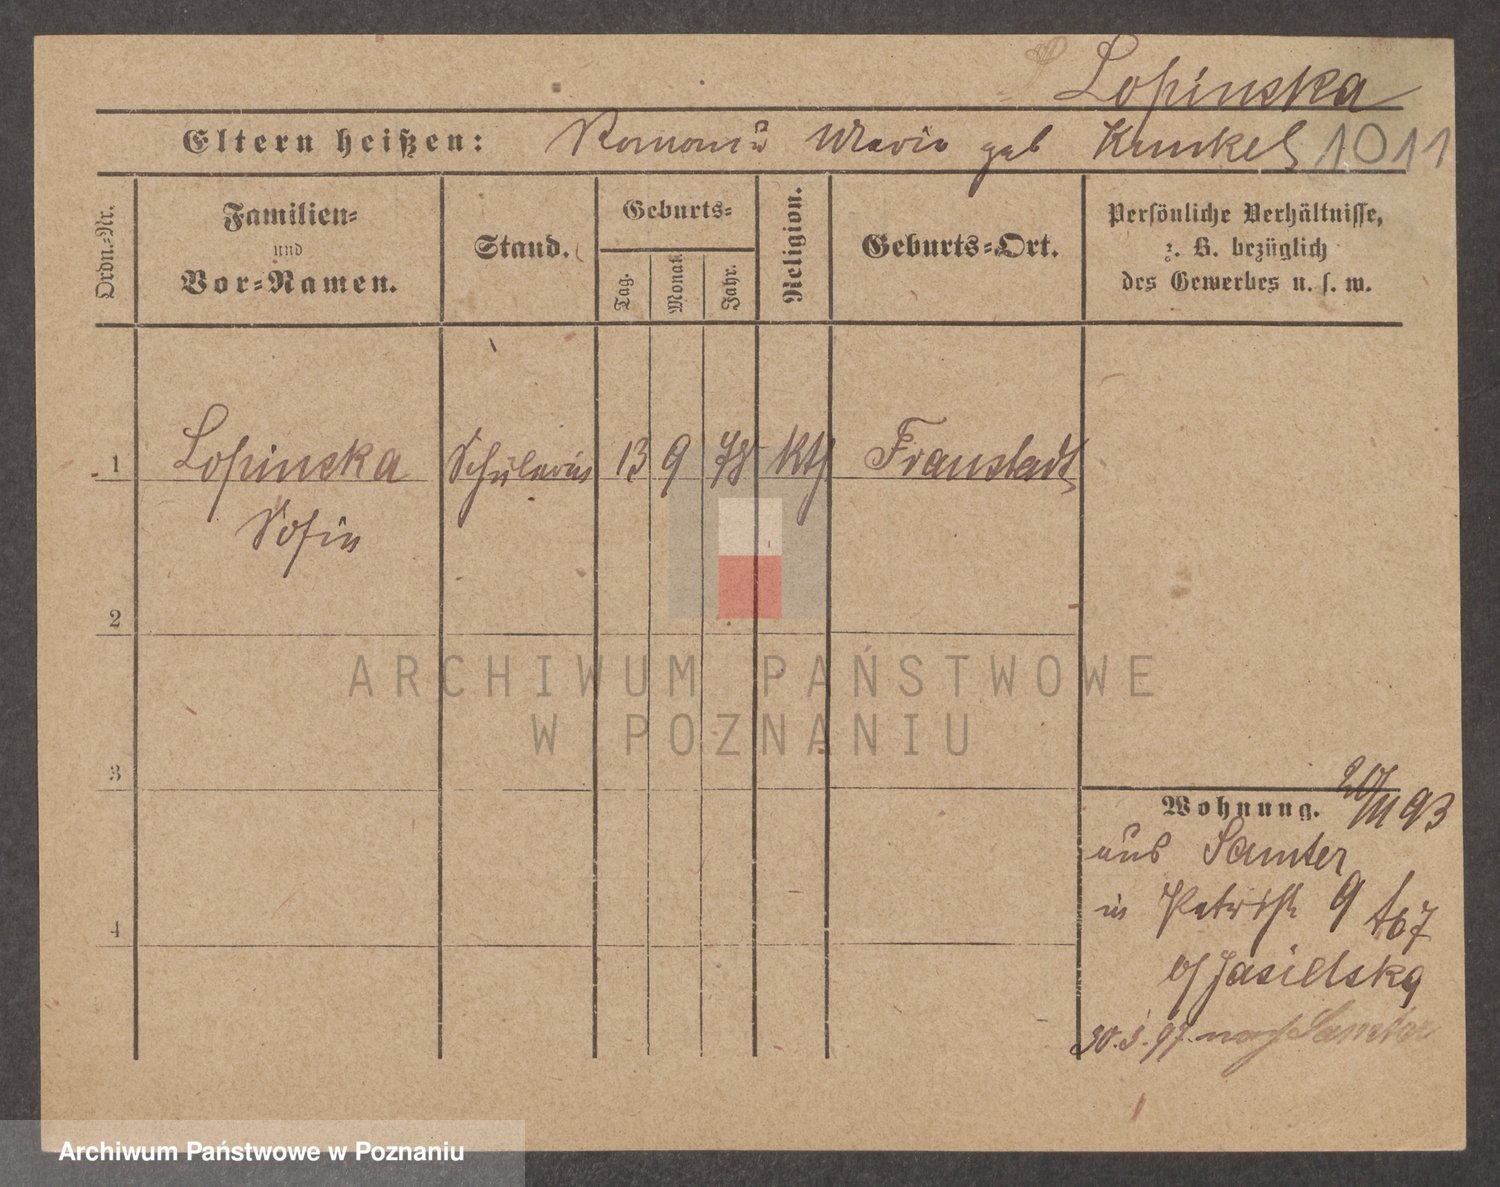 Lopinska
Eltern heißen: Roman u Maria geb Kunkel 1011
Ordn.-Nr.
Familien-
und
Vor-Namen.
Stand.
Geburts-
Tag.
Monat
Jahr.
Religion.
Geburts-Ort.
Persönliche Verhältnisse,
z. B. bezüglich
des Gewerbes u. s. w.
1 Lopinska Schülerin 13 9 78 Kth Fraustadt
Sofia
2
3
4
Wohnung. 93
aus Samter
in Petristr 9
b/ Jasielska
97. nach Samter
ARCHIWUM PAŃSTWOWE
W POZNANIU
Archiwum Państwowe w Poznaniu